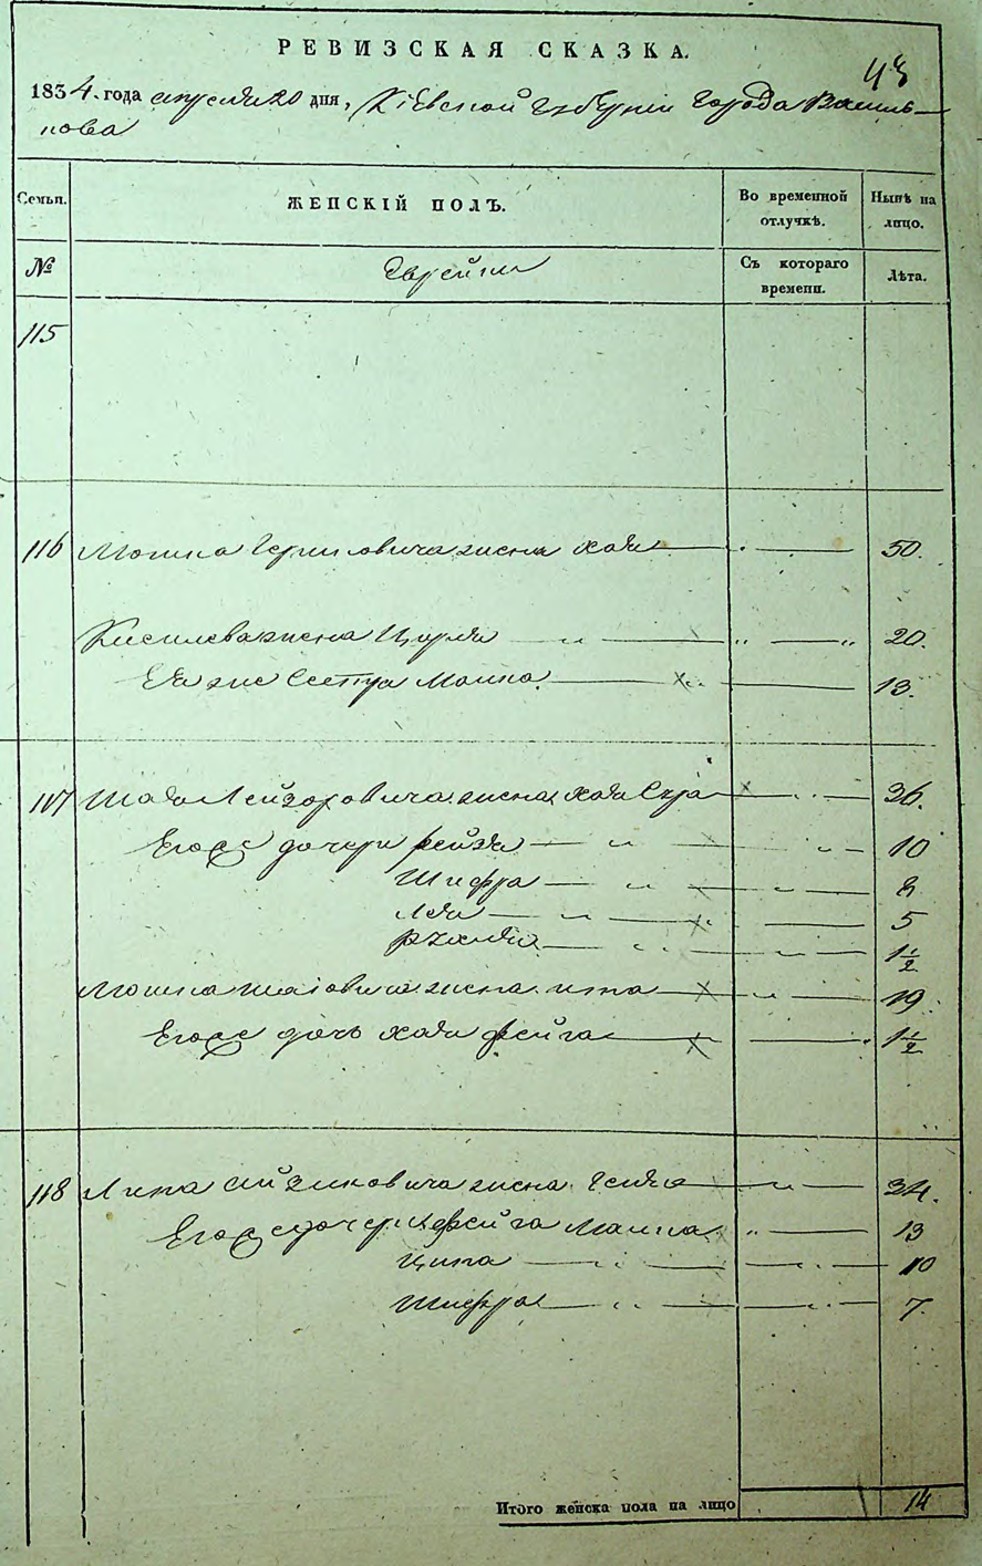 РЕВИЗСКАЯ СКАЗКА.
48
1834. года апреля 20 дня, Кіевской Губерніи Города Василь-
кова
Семьи.
ЖЕНСКІЙ ПОЛЪ.
Во временной отлучкѣ.
Нынѣ на лицо.
№
Еврейки
Съ котораго времени.
Лѣта.
115
116 Мошка Герш ковича жена Хая 50.
Киселева жена Цирля 20.
Ея же Сестра Малка 13.
117 Шая Лейзоровича жена Хая Сура 36.
Его же дочери Рейзя 10
Шифра 8
Лея 5
Рхаля 1½
Мошка Шаіовича жена Ита 19.
Его же дочь Хая Фейга 1½
118 Липа Айзиковича жена Геня 34.
Его же дочери Фейга Малка 13
Ципа 10
Шифра 7.
Итого женска пола на лицо 14